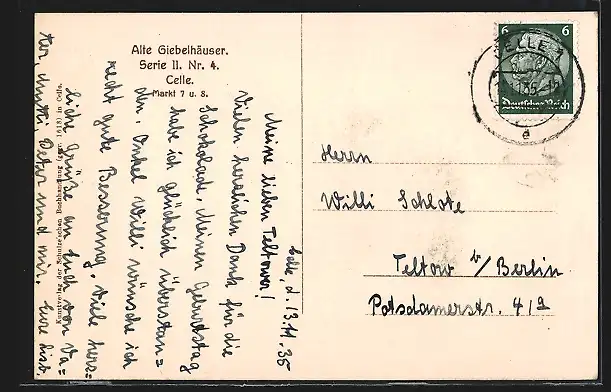 Alte Giebelhäuser.
Serie II. Nr. 4.
Celle.
Markt 7 u. 8.
Kunstverlag der Schulzeschen Buchhandlung (gegr. 1613) in Celle.
Celle, d. 13.11.35
Meine lieben Teltower!
Vielen herzlichen Dank für die
Schokolade. Meinen Geburtstag
habe ich glücklich überstan=
den. Onkel Willi wünsche ich
recht gute Besserung. Viele herz=
liche Grüße an Euch von Va=
ter, Mutti, Peter und mir. Eure
6 6
Deutsches Reich
CELLE
Herrn
Willi Schlote
Teltow b/Berlin
Potsdamerstr. 4